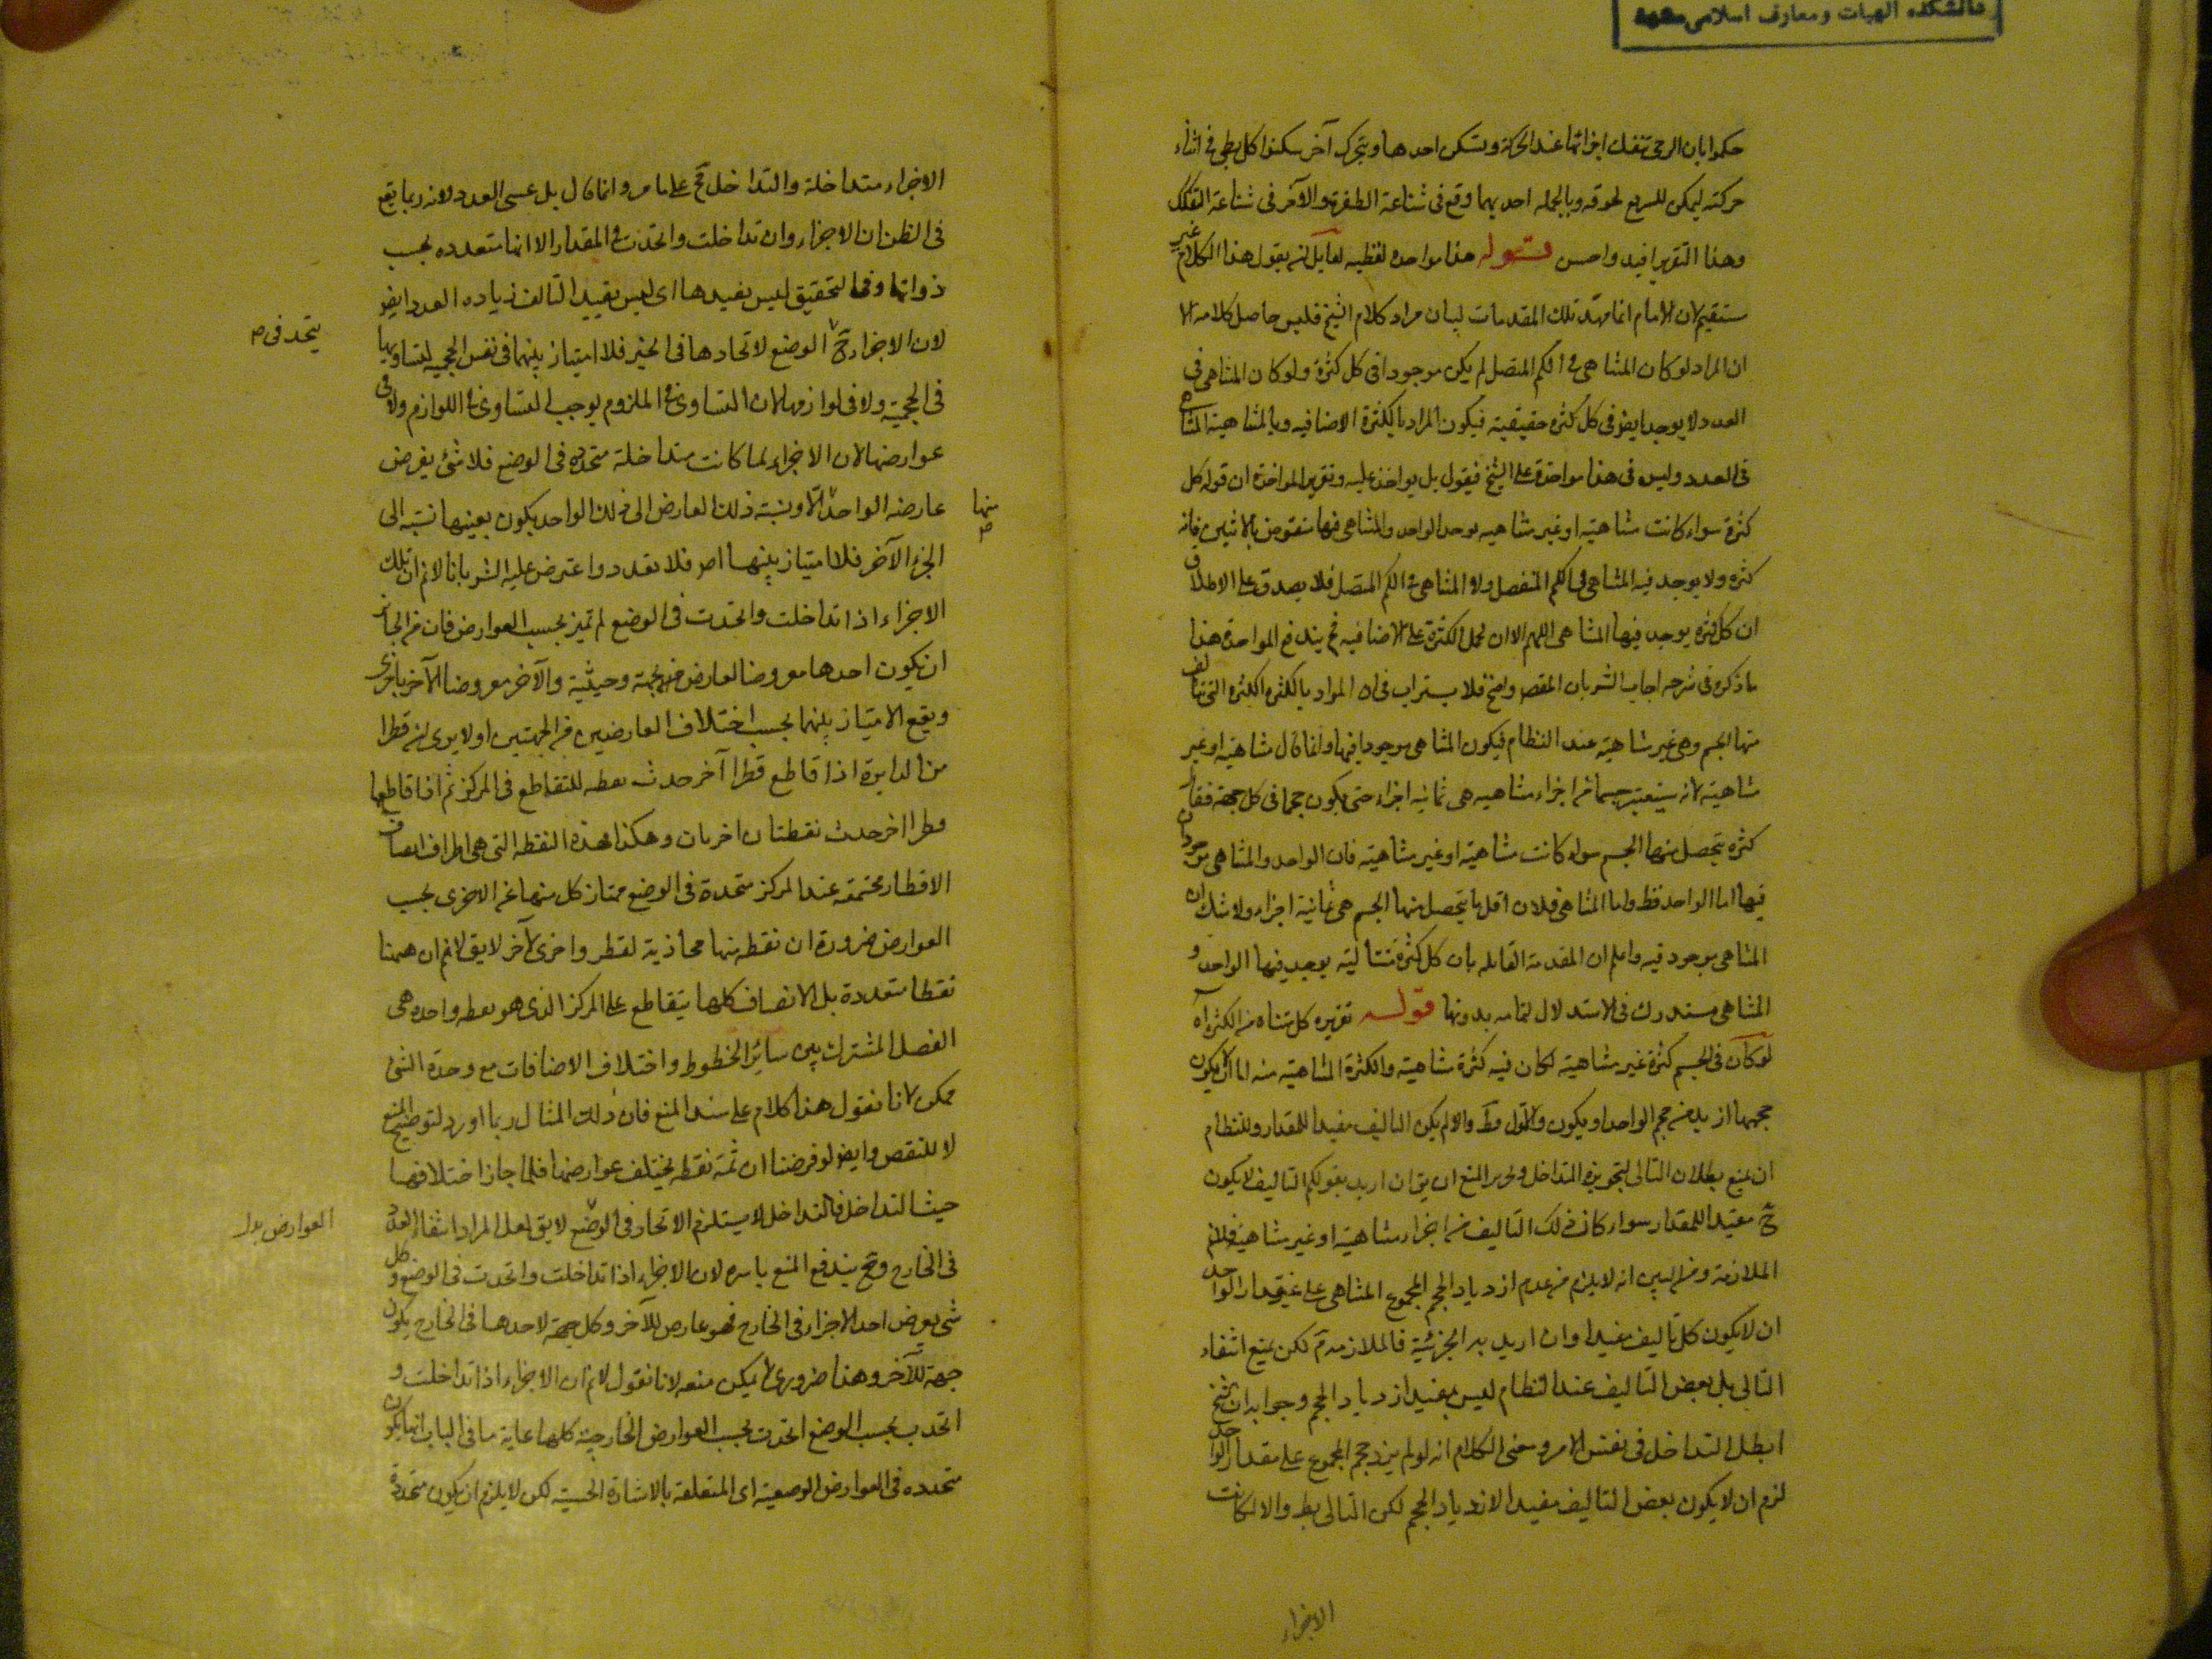 دانشکده الهیات ومعارف اسلامی مشهد
حکموا بان الرحی تنفک اجزائها عند الحرکة ویسکن احدها ویتحرک آخر سکنوا کل بطئ فی اثناء
حرکته لیمکن للسریع لحوقه وبالجمله احدیهما وقع فی شناعة الطفرة والآخر فی شناعة التفکک
وهذا التقریر افید واحسن قوله هذا مواخده لفظیه لقایل ان یقول هذا الکلام غیر
مستقیم لان الامام انما مهّد تلک المقدمات لبیان مراد کلام الشیخ فلیس حاصل کلامه الا
ان المراد لو کان المتناهی فی الکم المتصل لم یکن موجودا فی کل کثرة ولو کان المتناهی فی
العدد لا یوجد ایضا فی کل کثرة حقیقیة فیکون المراد بالکثرة الاضافیه وبالمتناهیة المتناهی
فی العدد ولیس فی هذا مواخذة علی الشیخ فیقول بل یواخذ علیه وتقریر المواخذة ان قوله کل
کثرة سواء کانت متناهیة او غیر متناهیه یوجد الواحد والمتناهی فیها منقوض بالاثنین فانه
کثرة ولا یوجد فیه المتناهی فی الکم المنفصل ولا المتناهی فی الکم المتصل فلا یصدق علی الاطلاق
ان کل کثرة یوجد فیها المتناهی اللهم الا ان یحمل الکثرة علی الاضافیه فح یندفع المواخدة هذا
ما ذکره فی شرحه اجاب الشر بان المقصد واضح فلا یستراب فی ان المراد بالکثرة الکثرة التی تتالف
منها الجسم وهی غیر متناهیة عند النظام فیکون المتناهی موجودا فیها وانما قال متناهیة او غیر
متناهیة لانه سیعتبر جسما من اجزاء متناهیه هی ثمانیه اجزاء حتی یکون حجما فی کل جهة فقال
کثرة یتحصل منها الجسم سواء کانت متناهیة او غیر متناهیة فان الواحد والمتناهی موجودان
فیها اما الواحد فظ واما المتناهی فلان اقل ما یتحصل منها الجسم هی ثمانیة اجزاء ولا شک ان
المتناهی موجود فیه واعلم ان المقدمة القایله بان کل کثرة یوجد فیها الواحد و
المتناهی مستدرک فی الاستدلال لتمامه بدونها قوله تقریره کل متناه من الکثرة اه
لو کان فی الجسم کثرة غیر متناهیة لکان فیه کثرة متناهیة والکثرة المتناهیة منه اما ان لا یکون
حجمها ازید من حجم الواحد او یکون والاول بط والا لم یکن التالیف مفیدا للمقدار وللنظام
ان یمنع بطلان التالی لتجویزه التداخل وتحریر المنع ان یق ان ارید بقولکم التالیف لا یکون
ح مفیدا للمقدار سواء کان ذلک التالیف من اجزاء متناهیة او غیر متناهیة فلانم
الملازمة ومن البین انه لا یلزم من عدم ازدیاد الحجم المجموع المتناهی علی مقدار الواحد
ان لا یکون کل تالیف مفیدا وان ارید به الجزئیة فالملازمة م لکن یمنع انتفاء
التالی بل بعض التالیف عند النظام لیس بمفید ازدیاد الحجم وجوابه ان الشیخ
ابطل التداخل فی نفس الامر ومعنی الکلام انه لو لم یزد حجم المجموع علی مقدار الواحد
لزم ان لا یکون بعض التالیف مفیدا لازدیاد الحجم لکن التالی بط والا لکانت
الاجزاء
الاجزاء متداخلة والتداخل مح علی ما مر وانما قال بل عسی العدد لانه ربما یقع
فی الظن ان الاجزاء وان تداخلت واتحدت فی المقدار الا انها متعدده بحسب
ذواتها وفی التحقیق لیس یفیدها ای لیس یفید التالف زیاده العدد ایض
لان الاجزاء ح الوضع لاتحادها فی الحیز فلا امتیاز بینهما فی نفس الحجمیة لتساویها
یتحد فی ص
فی الحجمیة ولا فی لوازمها لان التساوی فی الملزوم یوجب التساوی فی اللوازم ولا فی
عوارضها لان الاجزاء لما کانت متداخلة متحدة فی الوضع فلا شئ یفرض
عارضه الواحد الا ونسبة ذلک العارض الی ذلک الواحد یکون بعینها نسبته الی
منها ص
الجزء الآخر فلا امتیاز بینهما اصلا فلا تعدد واعترض علیه الشر بانا لا نم ان تلک
الاجزاء اذا تداخلت واتحدت فی الوضع لم تمیز بحسب العوارض فان من الجایز
ان یکون احدها معروضا لعارض من جهة وحیثیة والآخر معروضا لآخر باخری
ویقع الامتیاز بینهما بحسب اختلاف العارضین من الجهتین اولا یری ان قطرا
من الدایرة اذا قاطع قطرا آخر حدث نقطه للتقاطع فی المرکز ثم اذا قاطعها
قطرا اخر حدث نقطتان اخریان وهکذا فهذه النقطه التی هی اطراف انصاف
الاقطار مجتمعة عند المرکز متحدة فی الوضع ممتاز کل منها عن الاخری بحسب
العوارض ضرورة ان نقطه منها محاذیة لقطر واخری لآخر لا یق لا نم ان همنا
نقطا متعددة بل الانصاف کلها یتقاطع علی المرکز الذی هو نقطه واحدة هی
الفصل المشترک بین سائر الخطوط واختلاف الاضافات مع وحدة الشئ
ممکن لانا نقول هذا کلام علی سند المنع فان ذلک المثال ربما اورد لتوضیح المنع
لا للنقض وایض لو فرضنا ان ثمة نقطه یختلف عوارضها فلما جاز اختلافها
حیث التداخل فالتداخل لا یستلزم الاتحاد فی الوضع لا یق لعل المراد انتفاء التعدد
العوارض بدل
فی الخارج وح یندفع المنع باسره لان الاجزاء اذا تداخلت واتحدت فی الوضع وکل
شئ یعرض احد الاجزاء فی الخارج فهو عارض للآخر وکل جهة لاحدها فی الخارج یکون
جهة للآخر وهذا ضروری لا یمکن منعه لانا نقول لا نم ان الاجزاء اذا تداخلت و
اتحدت بحسب الوضع اتحدت بحسب العوارض الخارجیة کلها غایة ما فی الباب انها یکون
متحدة فی العوارض الوضعیة ای المتعلقة بالاشارة الحسیة لکن لا یلزم ان یکون متحدة